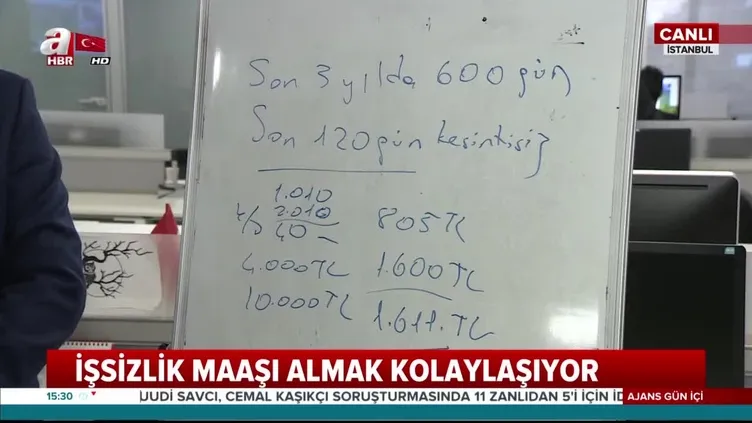 a
HBR
HD
CANLI
İSTANBUL
Son 3 yılda 600 gün
Son 120 gün kesintisiz
1.010
2.010
% 40 –
805 TL
4.000 TL
1.600 TL
10.000 TL
1.611. TL
İŞSİZLİK MAAŞI ALMAK KOLAYLAŞIYOR
15:30
UUDİ SAVCI, CEMAL KAŞIKÇI SORUŞTURMASINDA 11 ZANLIDAN 5'İ İÇİN İD
AJANS GÜN İÇİ